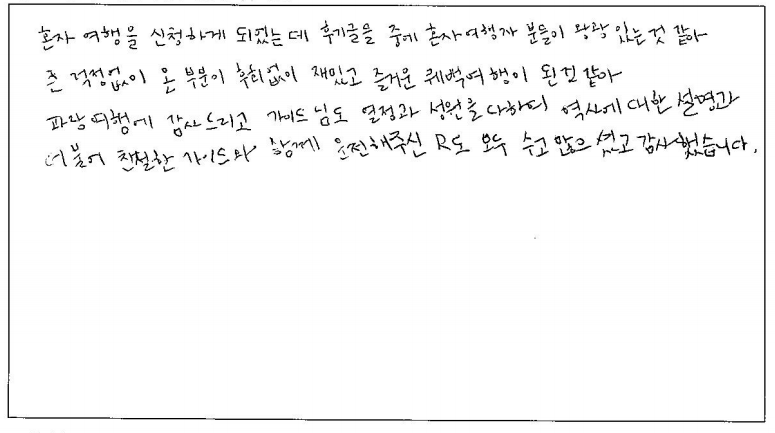 혼자 여행을 신청하게 되었는데 후기글을 중에 혼자여행자 분들이 왕왕 있는것 같아
큰 걱정없이 온 부분이 후회없이 재밌고 즐거운 퀘벡여행이 된것 같아
파랑여행에 감사드리고 가이드님도 열정과 성원을 다하여 역사에 대한 설명과
더불어 친절한 가이드와 함께 운전해주신 R도 모두 수고 많으셨고 감사했습니다.